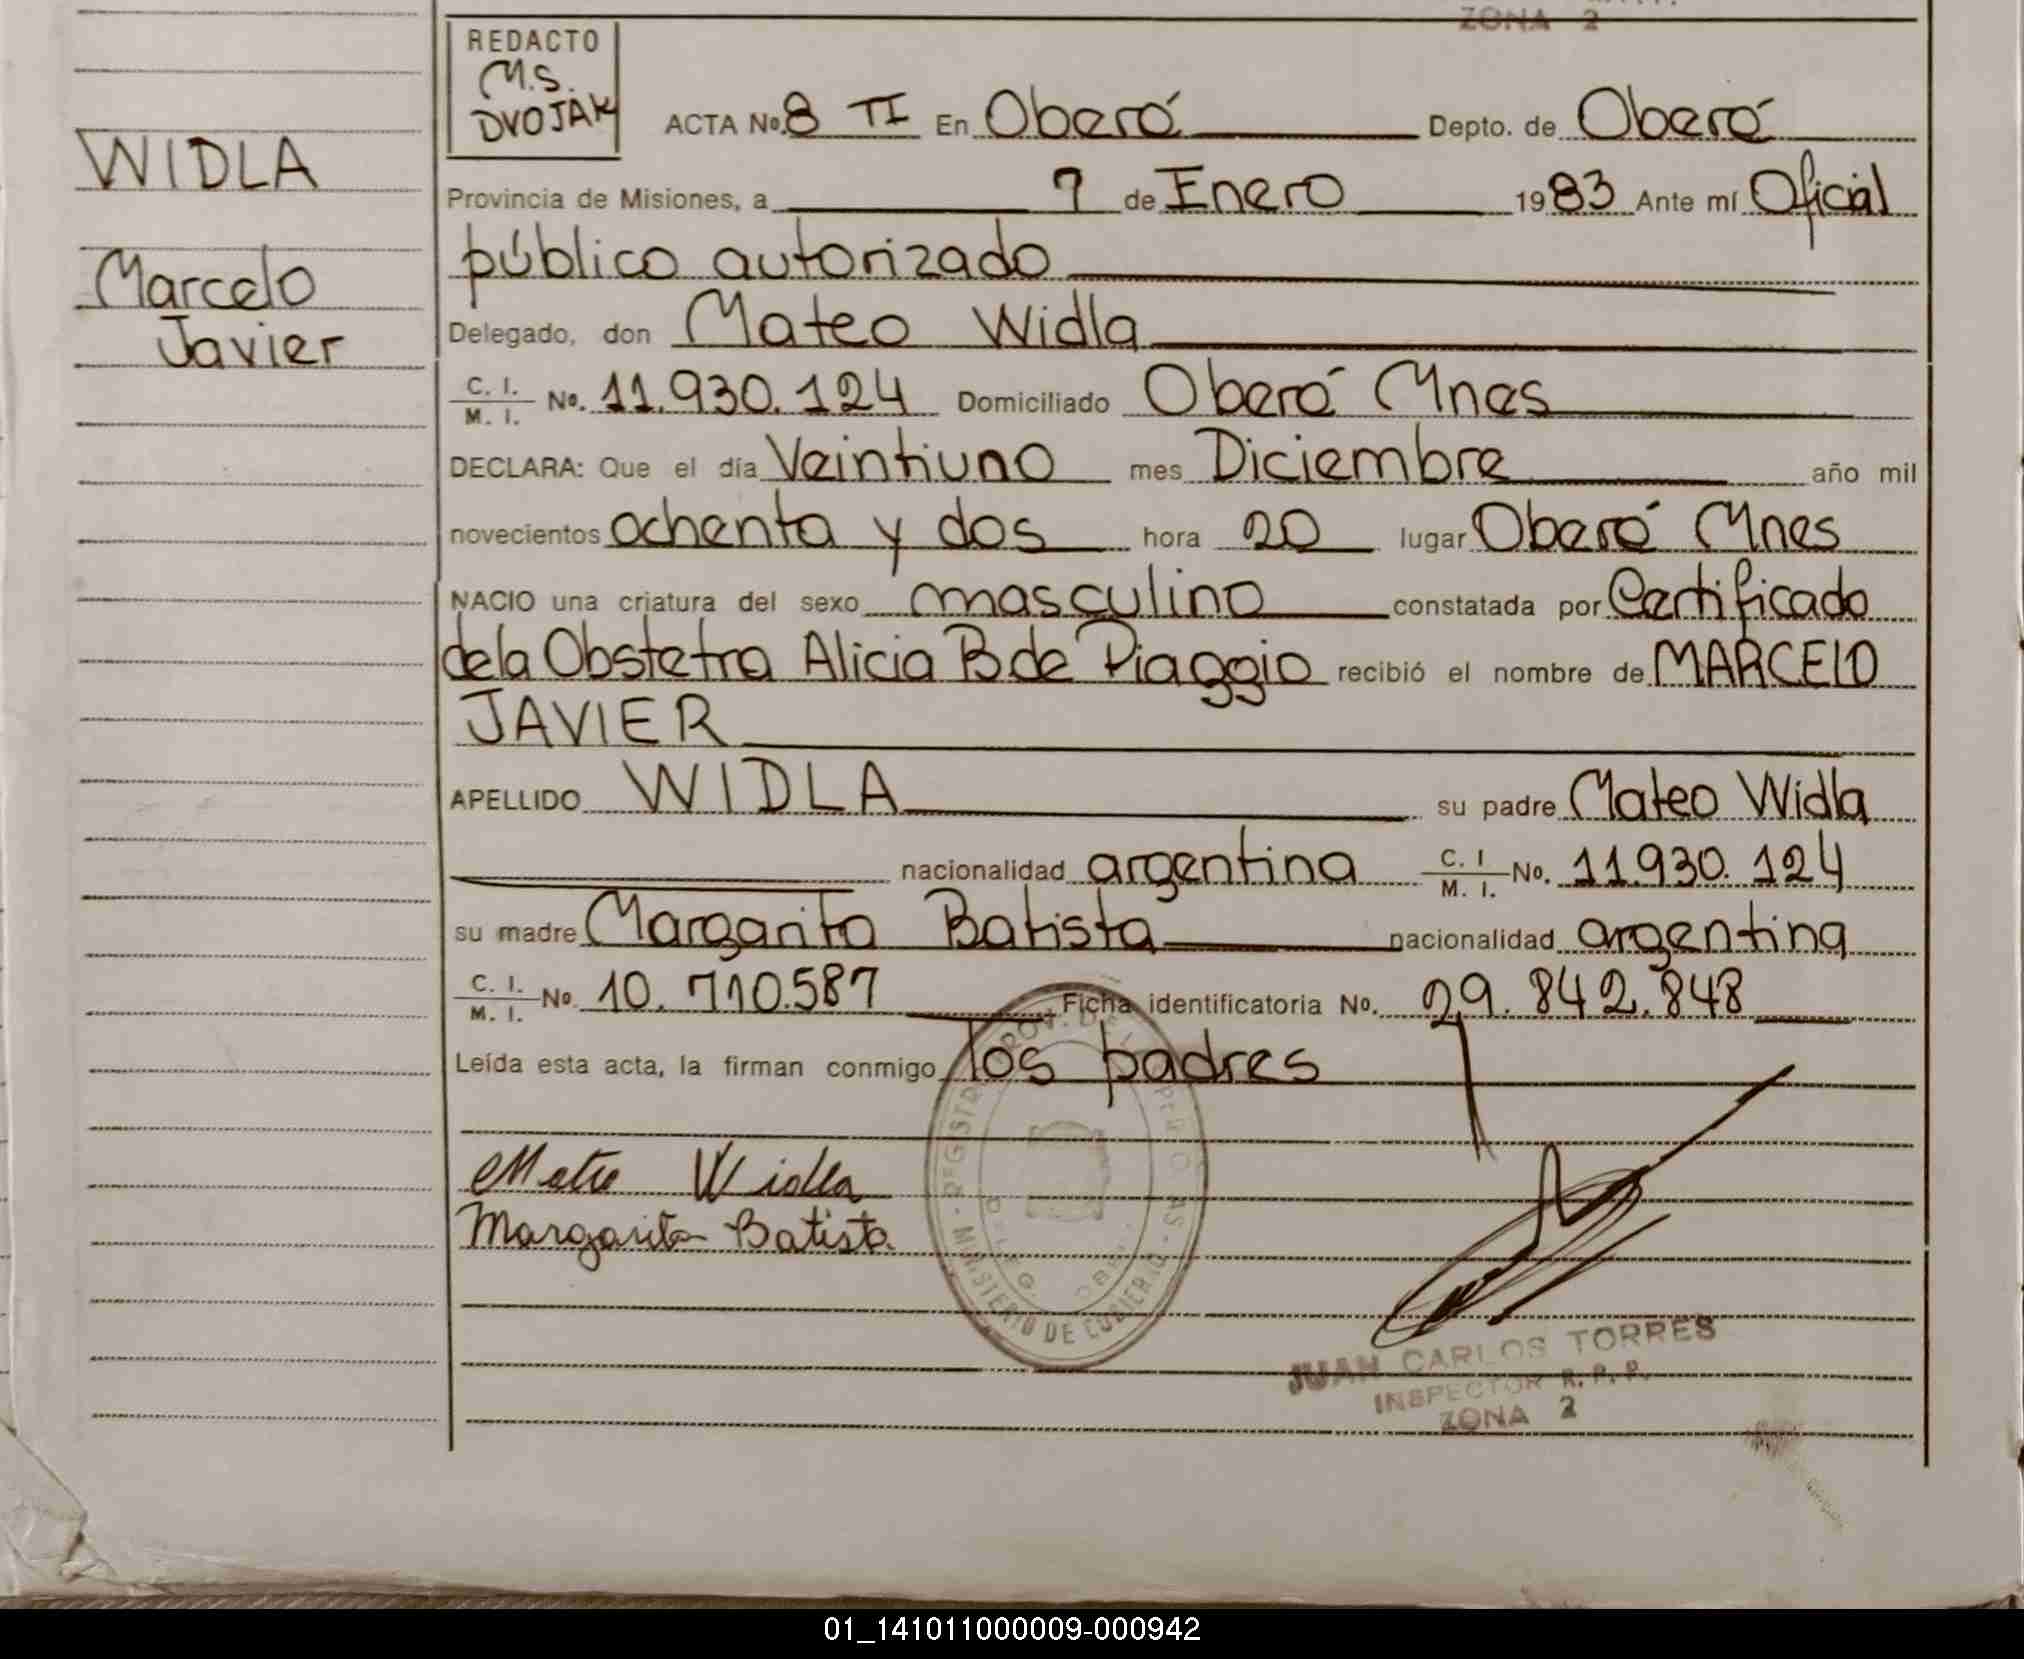 ZONA 2
REDACTO
M.S.
DVOJAK
ACTA No. 8 TI En Oberá Depto. de Oberá
WIDLA
Provincia de Misiones, a 7 de Enero 1983 Ante mí Oficial
público autorizado
Marcelo
Javier
Delegado, don Mateo Widla
C. I. M. I. No. 11.930.124 Domiciliado Oberá Mnes
DECLARA: Que el día Veintiuno mes Diciembre año mil
novecientos ochenta y dos hora 20 lugar Oberá Mnes
NACIO una criatura del sexo masculino constatada por Certificado
de la Obstetra Alicia B de Piaggio recibió el nombre de MARCELO
JAVIER
APELLIDO WIDLA su padre Mateo Widla
nacionalidad argentina C. I M. I. No. 11.930.124
su madre Margarita Batista nacionalidad argentina
C. I. M. I. No. 10.710.587 Ficha identificatoria No. 29.842.848
Leída esta acta, la firman conmigo los padres
Mateo Widla
Margarita Batista
MINISTERIO DE GOBIERNO
JUAN CARLOS TORRES
INSPECTOR R. P. P.
ZONA 2
01_141011000009-000942